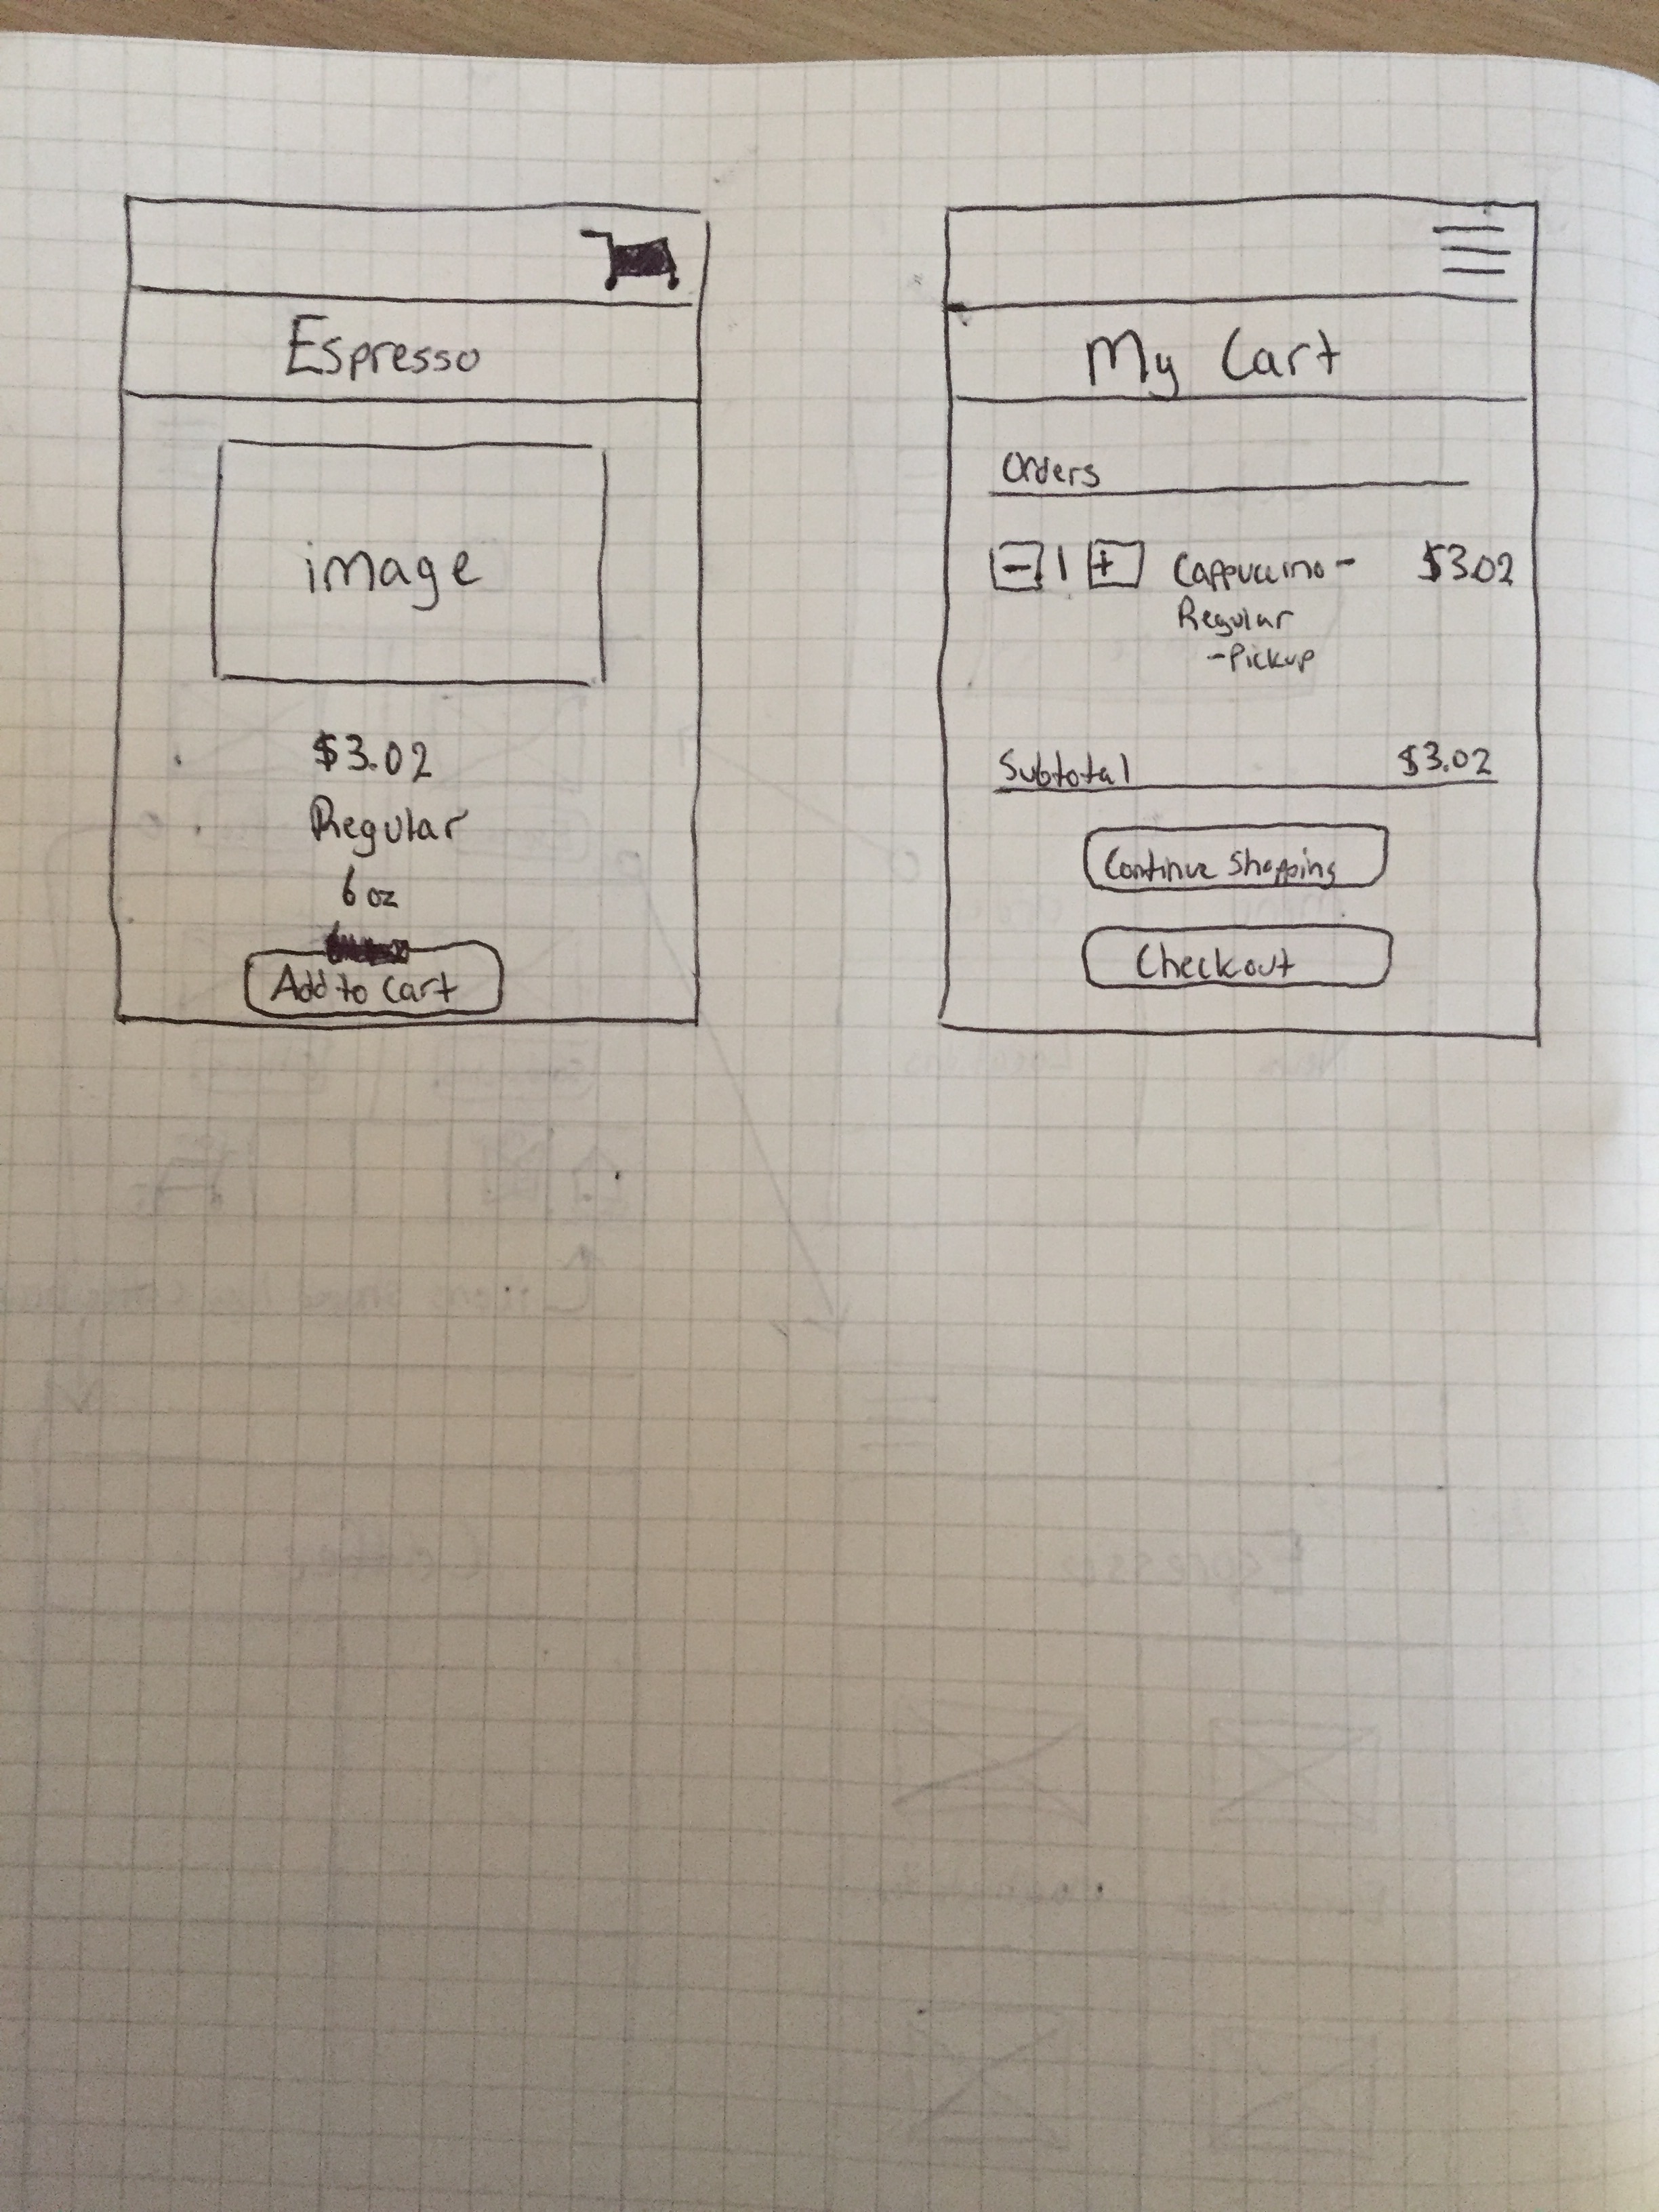 Espresso
image
$3.02
Regular
6 oz
Add to Cart
My Cart
Orders
- 1 + Cappuccino - $3.02
Regular
- Pickup
Subtotal $3.02
Continue Shopping
Checkout
Espresso